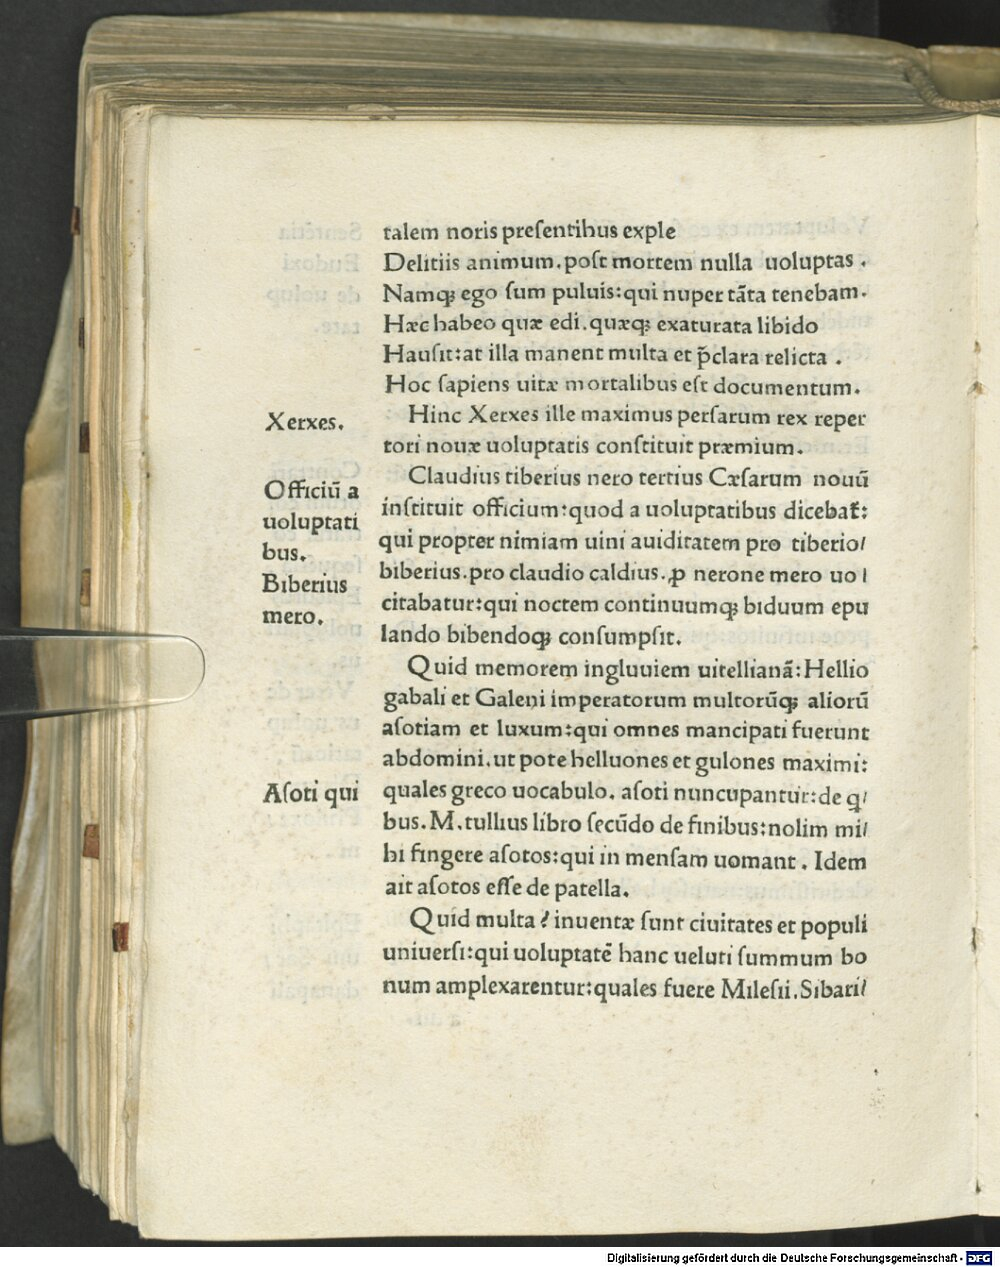 talem noris preſentibus exple
Delitiis animum.poſt mortem nulla uoluptas .
Namqꝫ ego ſum puluis:qui nuper tãta tenebam.
Hæc habeo quæ edi.quæqꝫ exaturata libido
Hauſit:at illa manent multa et p̃clara relicta .
Hoc ſapiens uitæ mortalibus eſt documentum.
Xerxes.
Hinc Xerxes ille maximus perſarum rex reper
tori nouæ uoluptatis conſtituit præmium.
Officiũ a
uoluptati
bus.
Biberius
mero.
Claudius tiberius nero tertius Cæſarum nouũ
inſtituit officium:quod a uoluptatibus dicebat̃:
qui propter nimiam uini auiditatem pro tiberio/
biberius.pro claudio caldius.ꝓ nerone mero uo/
citabatur:qui noctem continuumqꝫ biduum epu
lando bibendoqꝫ conſumpſit.
Quid memorem ingluuiem uitellianã:Hellio
gabali et Galeni imperatorum multorũqꝫ aliorũ
aſotiam et luxum:qui omnes mancipati fuerunt
abdomini.ut pote helluones et gulones maximi:
Aſoti qui
quales greco uocabulo. aſoti nuncupantur:de q/
bus.M.tullius libro ſecũdo de finibus:nolim mi/
hi fingere aſotos:qui in menſam uomant . Idem
ait aſotos eſſe de patella.
Quid multa? inuentæ ſunt ciuitates et populi
uniuerſi:qui uoluptatẽ hanc ueluti ſummum bo
num amplexarentur:quales fuere Mileſii.Sibari/
Digitalisierung gefördert durch die Deutsche Forschungsgemeinschaft - DFG